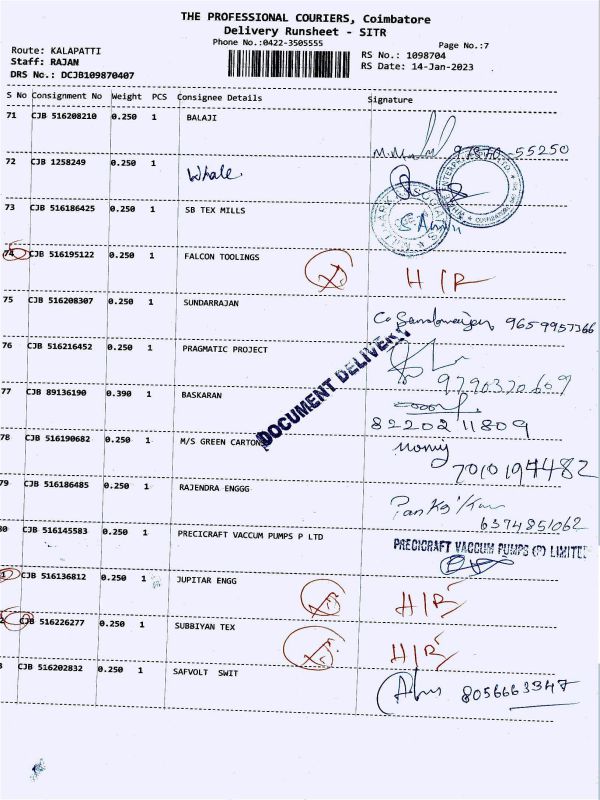 THE PROFESSIONAL COURIERS, Coimbatore
Delivery Runsheet - SITR
Phone No.:0422-3505555
Page No.:7
Route: KALAPATTI
RS No.: 1098704
Staff: RAJAN
RS Date: 14-Jan-2023
DRS No.: DCJB109870407
S No Consignment No Weight PCS Consignee Details Signature
71 CJB 516208210 0.250 1 BALAJI
55250
72 CJB 1258249 0.250 1 Whale
73 CJB 516186425 0.250 1 SB TEX MILLS
74 CJB 516195122 0.250 1 FALCON TOOLINGS H/R
75 CJB 516208307 0.250 1 SUNDARRAJAN
9659957366
76 CJB 516216452 0.250 1 PRAGMATIC PROJECT
9790370609
DOCUMENT DELIVERY
77 CJB 89136190 0.390 1 BASKARAN
82202 11809
78 CJB 516190682 0.250 1 M/S GREEN CARTONS
7010194482
79 CJB 516186485 0.250 1 RAJENDRA ENGGG
6374851062
80 CJB 516145583 0.250 1 PRECICRAFT VACCUM PUMPS P LTD
PRECICRAFT VACCUM PUMPS (P) LIMITE
CJB 516136812 0.250 1 JUPITAR ENGG H/R
2 CJB 516226277 0.250 1 SUBBIYAN TEX H/R
3 CJB 516202832 0.250 1 SAFVOLT SWIT
8056663347